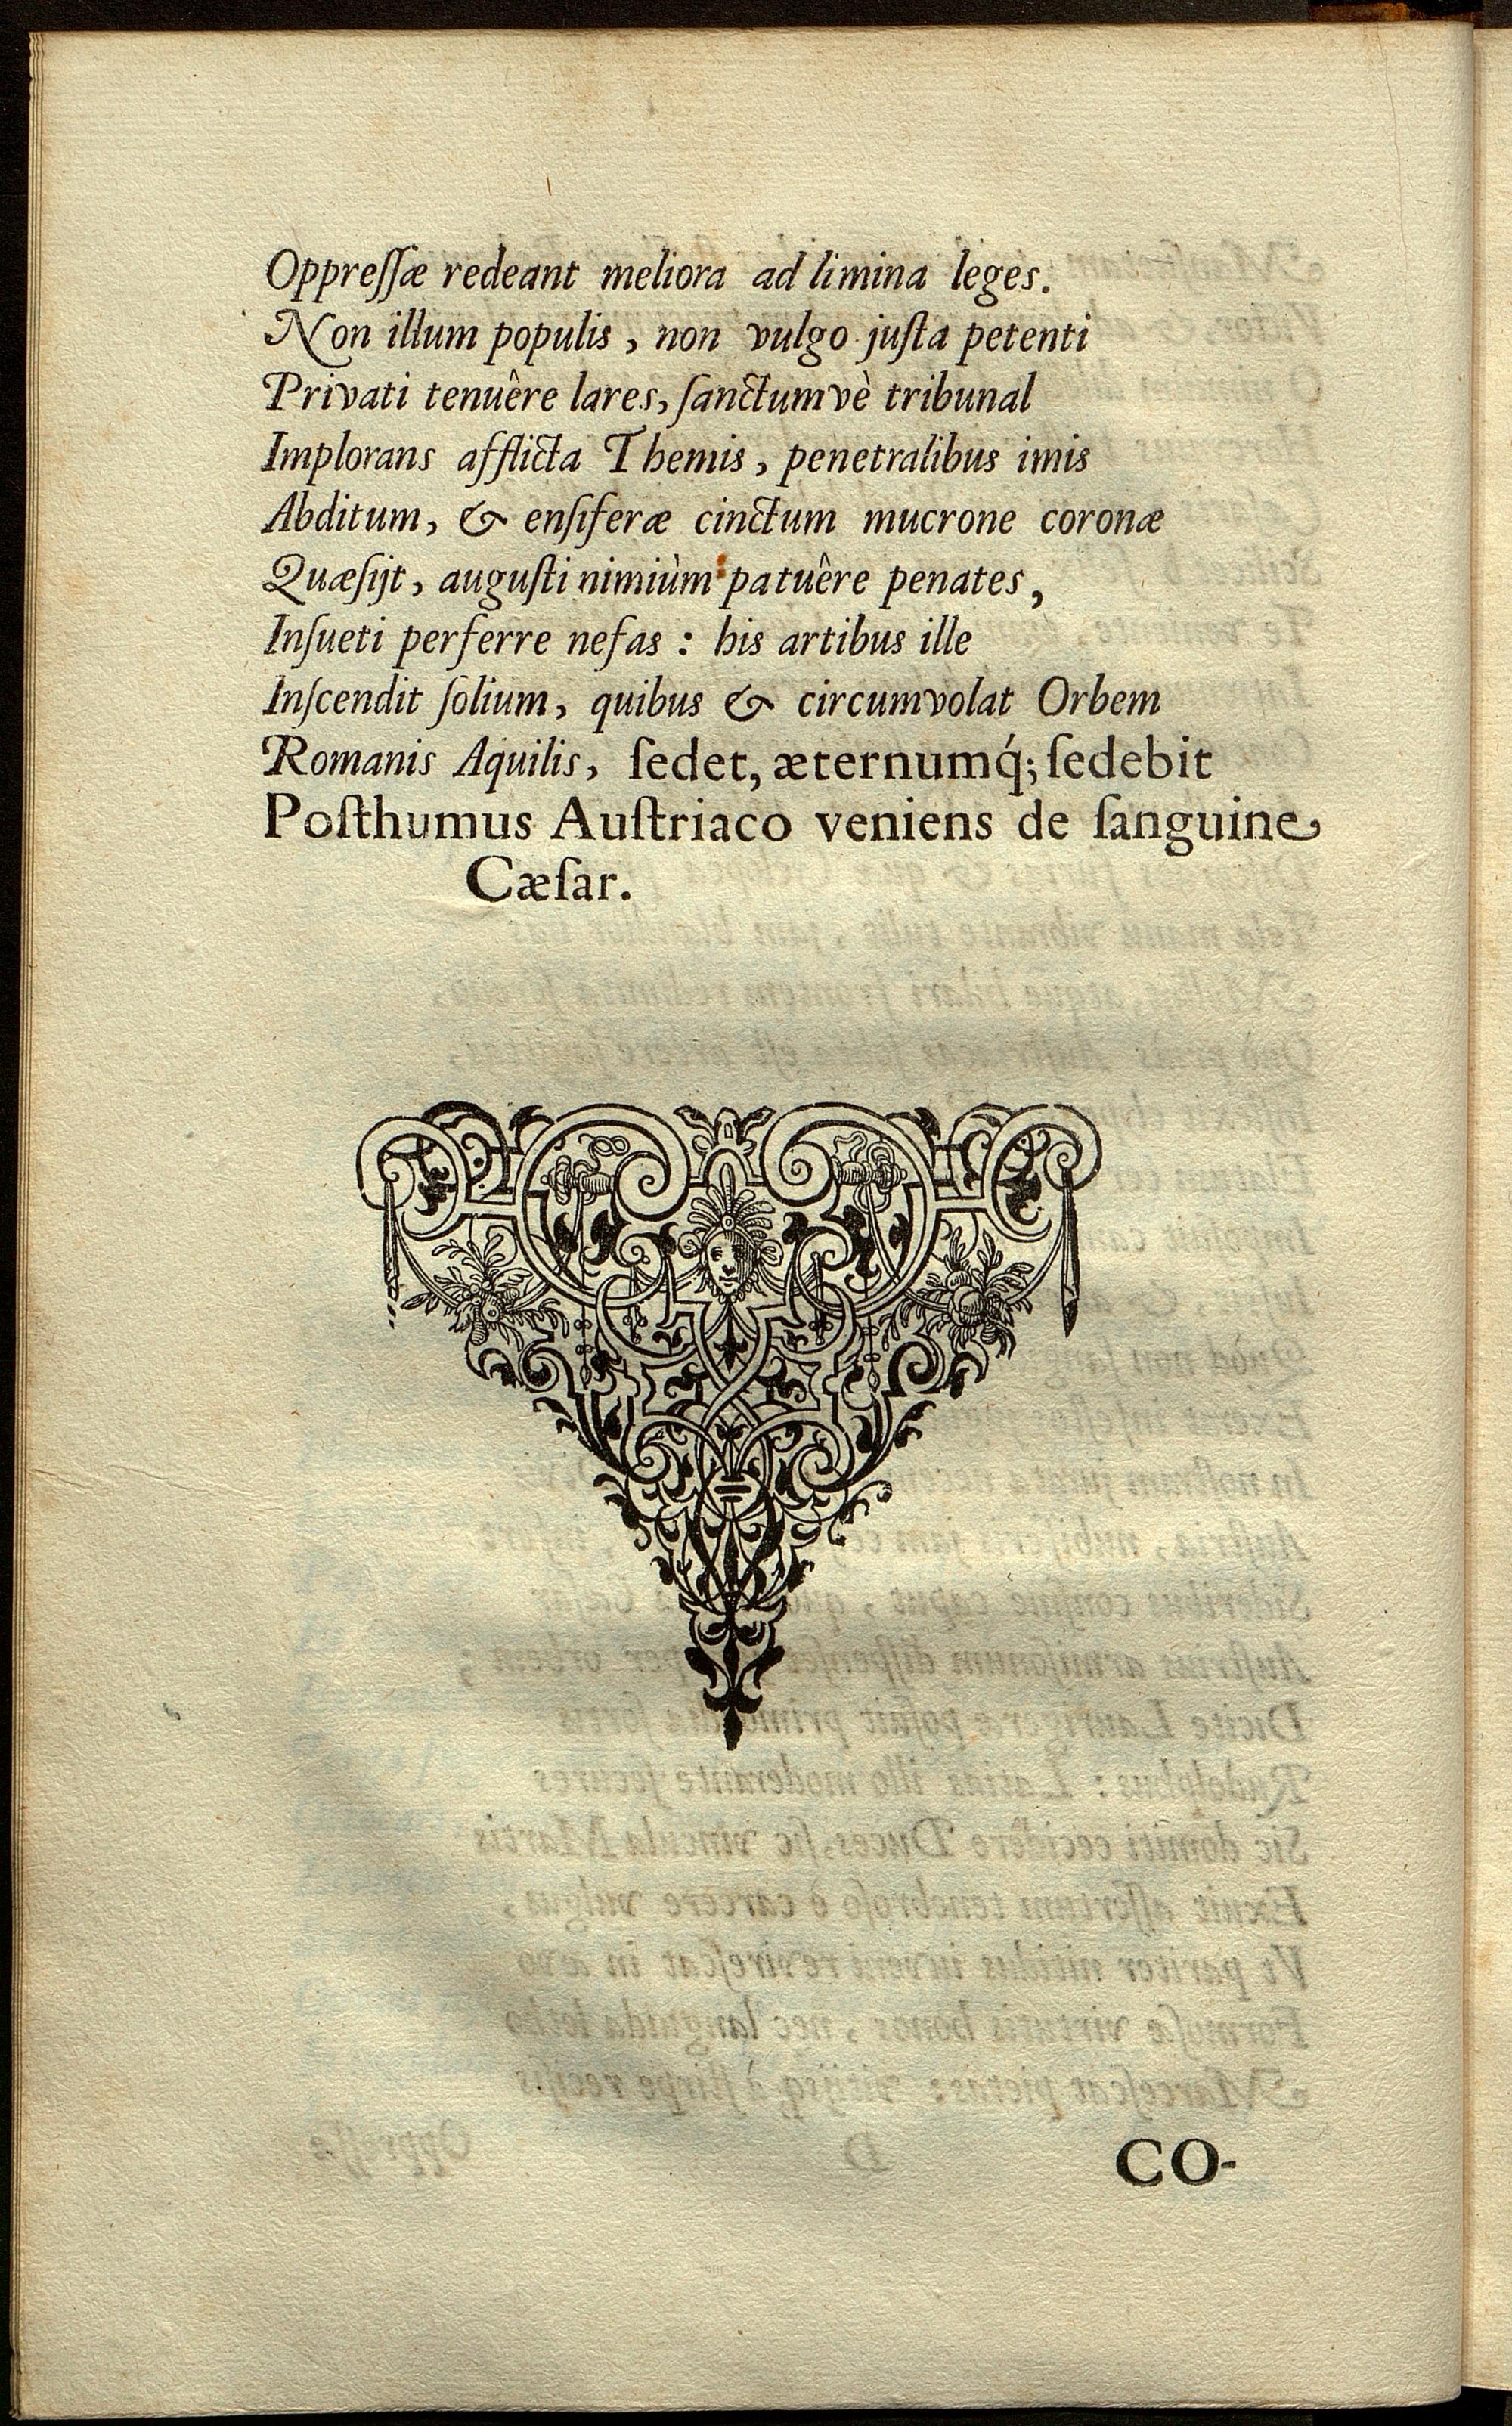 Oppreſſæ redeant meliora ad limina leges.
Non illum populis, non vulgo juſta petenti
Privati tenuêre lares, ſanctumvè tribunal
Implorans afflicta Themis, penetralibus imis
Abditum, & enſiferæ cinctum mucrone coronæ
Quæſijt, auguſti nimiùm patuêre penates,
Inſueti perferre nefas: his artibus ille
Inſcendit ſolium, quibus & circumvolat Orbem
Romanis Aquilis, ſedet, æternumq́; ſedebit
Poſthumus Auſtriaco veniens de ſanguine
Cæſar.
CO-